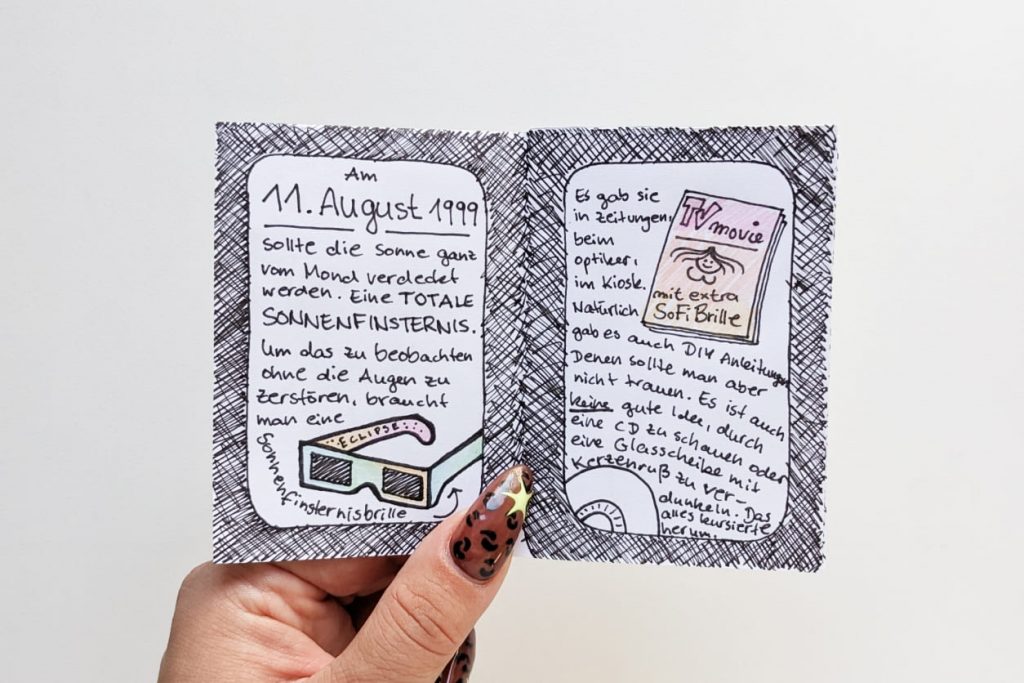 Am
11. August 1999
sollte die Sonne ganz
vom Mond verdeckt
werden. Eine TOTALE
SONNENFINSTERNIS.
Um das zu beobachten
ohne die Augen zu
zerstören, braucht
man eine
Sonnenfinsternisbrille
ECLIPSE
Es gab sie
in Zeitungen,
beim
Optiker,
im Kiosk.
Natürlich
gab es auch DIY Anleitungen
Denen sollte man aber
nicht trauen. Es ist auch
keine gute Idee, durch
eine CD zu schauen oder
eine Glasscheibe mit
Kerzenruß zu ver-
dunkeln. Das
alles kursierte
herum.
TV movie
mit extra
SoFi Brille